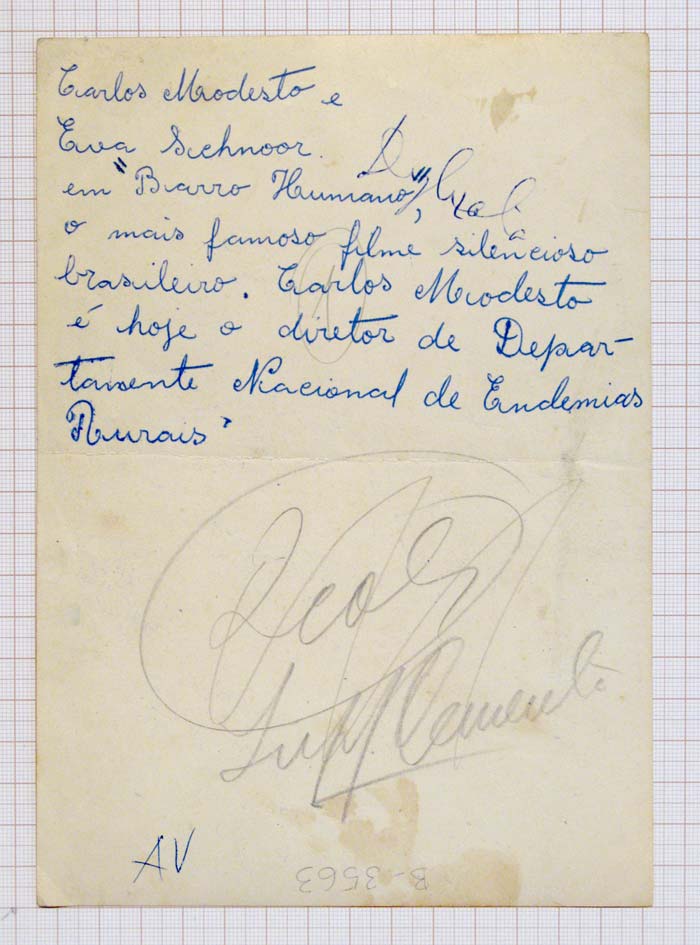 Carlos Modesto e
Eva Schnoor
em "Barro Humano",
o mais famoso filme silencioso
brasileiro. Carlos Modesto
é hoje o diretor de Depar-
tamente Nacional de Endemias
Rurais
AV
B-3563